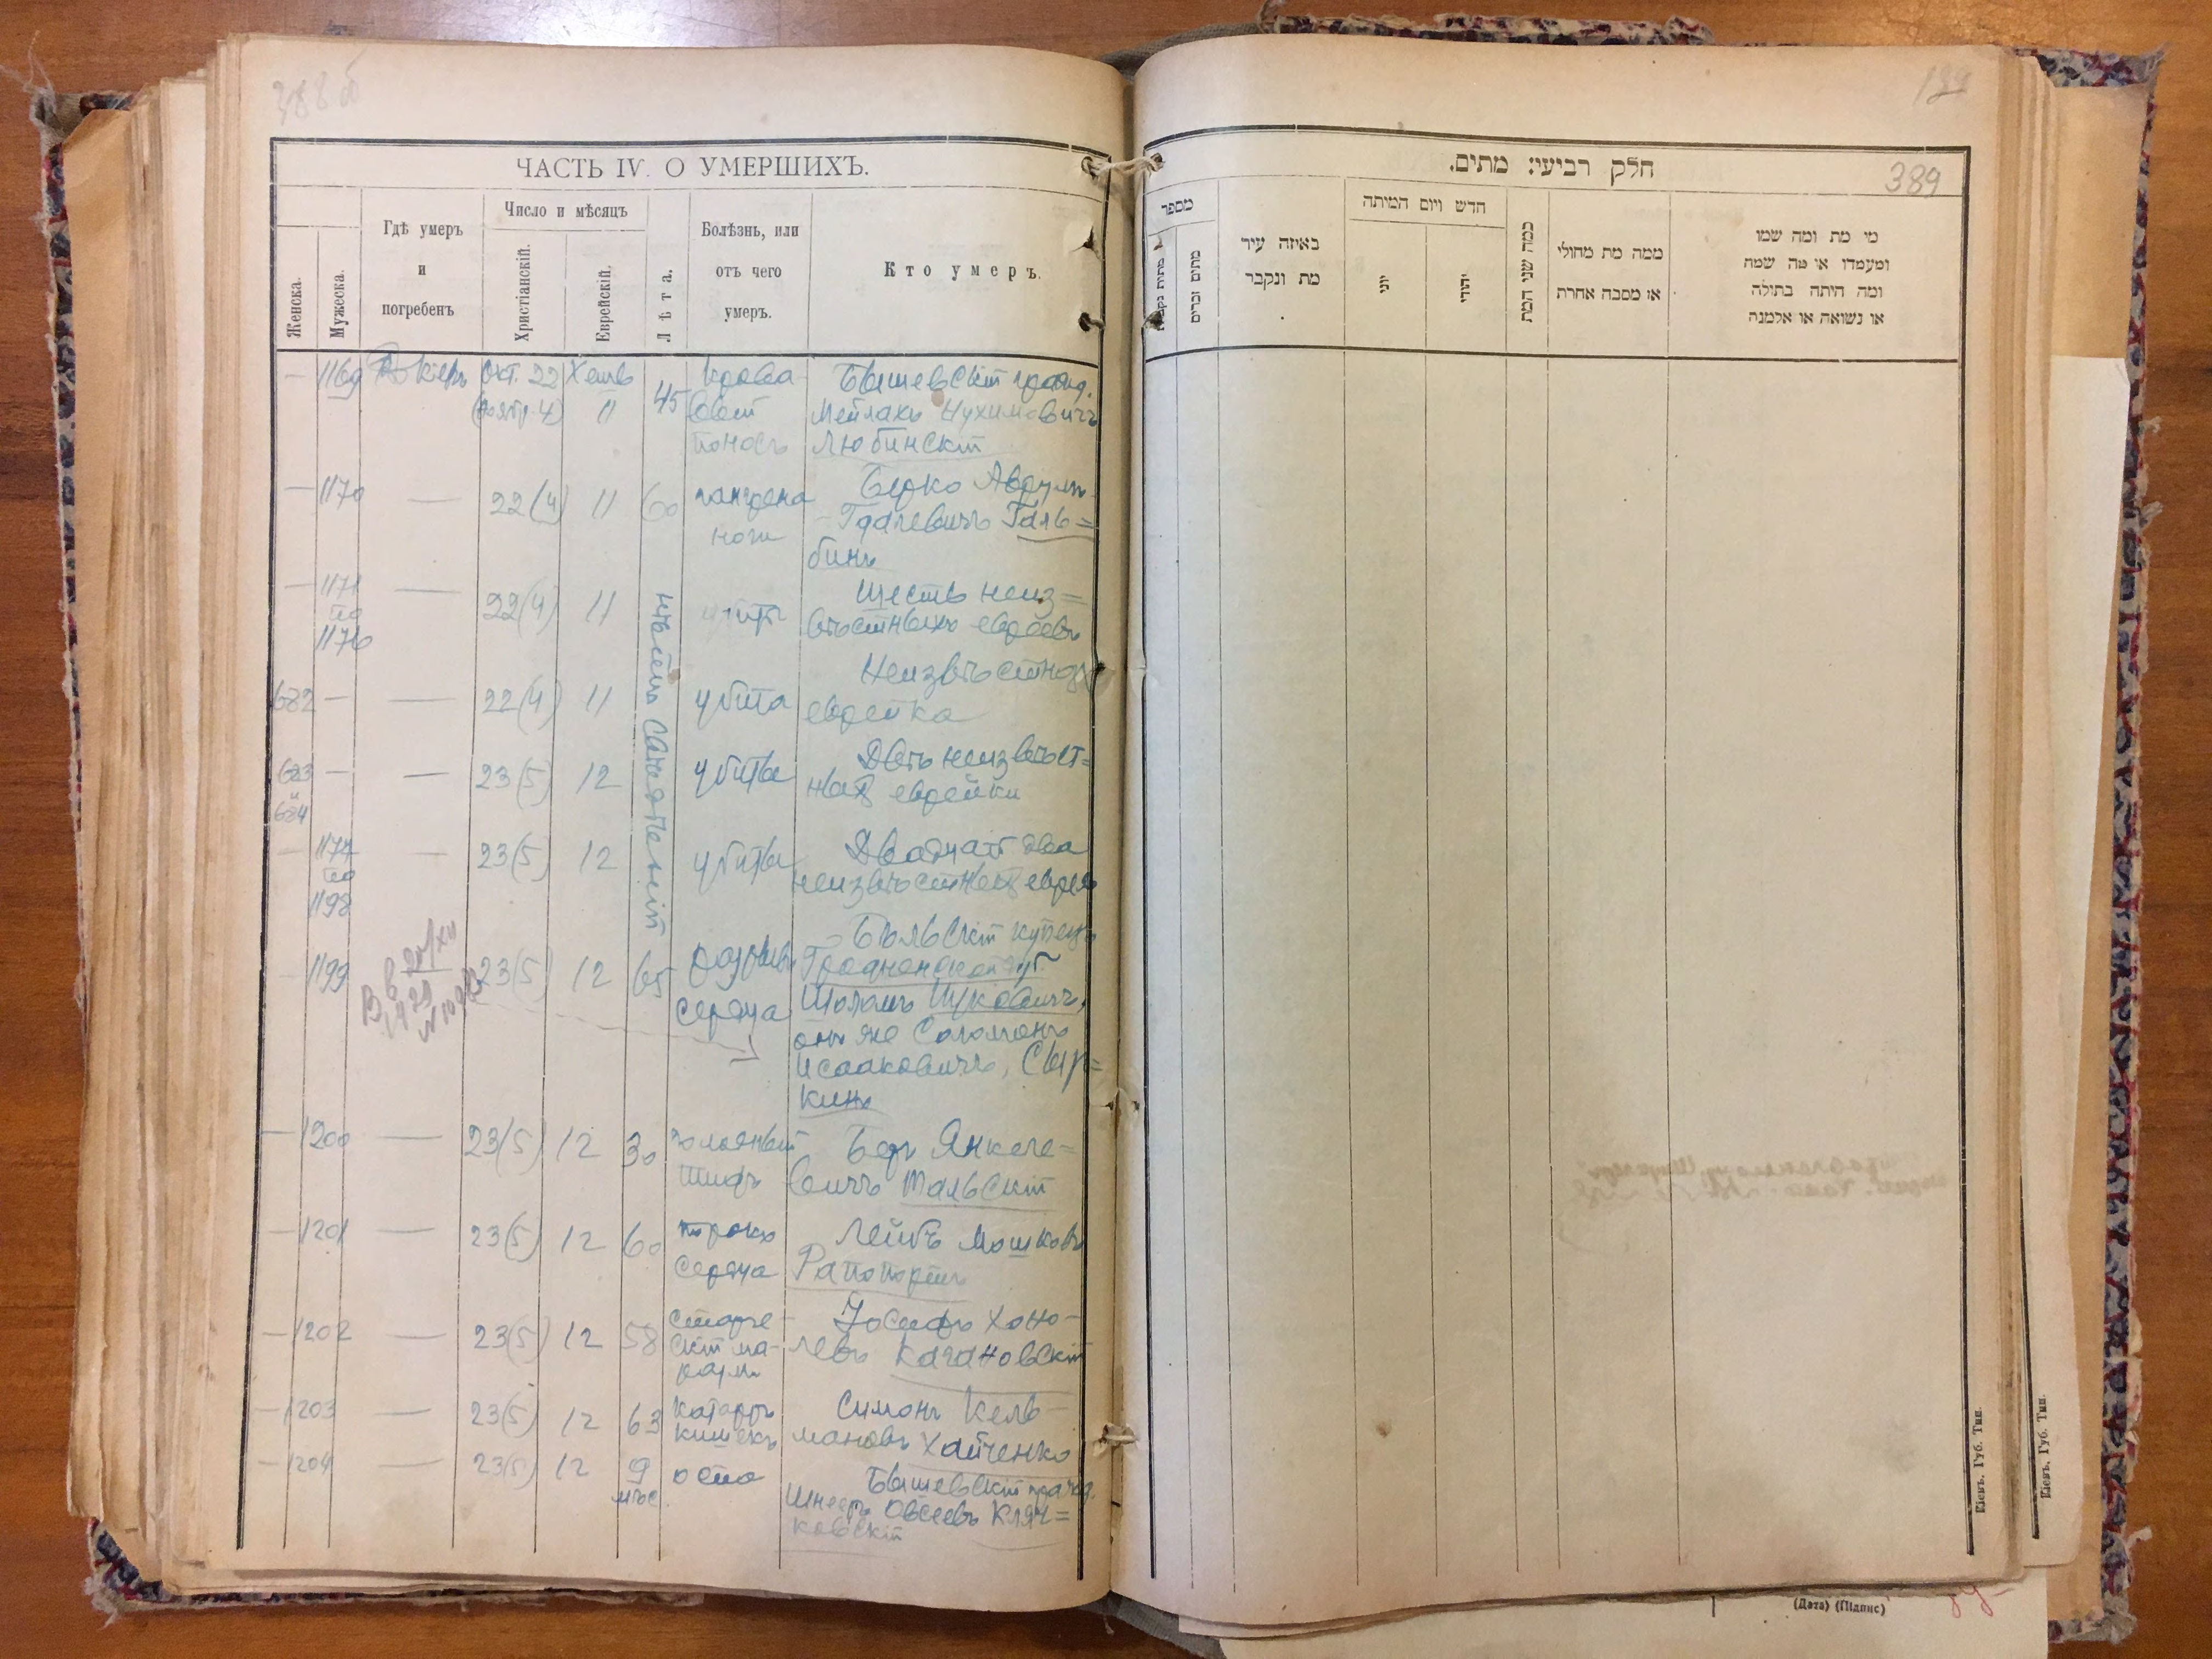 388 об
ЧАСТЬ IV. О УМЕРШИХЪ.
Женска.
Мужеска.
Гдѣ умеръ
и
погребенъ
Число и мѣсяцъ
Христіанскій.
Еврейскій.
Лѣта.
Болѣзнь, или
отъ чего
умеръ.
Кто умеръ.
— 1169 Окт. 22 45 Крова- Бышевскій гражд.
(ноябр. 4) 11 вый Мейлахъ Нухимовичъ
поносъ Любинскій
— 1170 — 22(4) 11 60 гангрена Берко Аврумъ-
ноги -Гдалевичъ Галь=
бинъ
— 1171 — 22(4) 11 Шесть неиз=
по вѣстныхъ евреевъ
1176
Неизвѣстная
682 — — 22(4) 11 убита еврейка
683 — — 23(5) 12 убиты Двѣ неизвѣст=
и ныя еврейки
684
— 1177 — 23(5) 12 убиты Двадцать два
по неизвѣстныхъ еврея
1198
Бѣльскій купецъ
— 1199 23(5) 12 65 разрывъ Гродненской губ.
сердца Шоломъ Ицковичъ,
онъ же Соломонъ
Исааковичъ, Сыр=
кинъ
— 1200 — 23(5) 12 30 голодный Беръ Янкеле-
тифъ вичъ Тальскій
— 1201 — 23(5) 12 60 порокъ Лейбъ Мошковъ
сердца Рапопортъ
— 1202 — 23(5) 12 58 старче- Іосифъ Хоно-
скій ма- левъ Кагановскій
разм.
— 1203 — 23(5) 12 63 катарръ Симонъ Кель-
кишекъ мановъ Хайченко
— 1204 — 23(5) 12 9 оспа Бышевскій гражд.
мѣс. Шнееръ Овсеевъ Кляч=
ковскій
חלק רביעי: מתים.
389
מספר
מתים זכרים
באיזה עיר
מת ונקבר
חדש ויום המיתה
יוני
יהודי
כמה שני המת
ממה מת מחולי
או מסבה אחרת
מי מת ומה שמו
ומעמדו או מה שמה
ומה היתה בתולה
או נשואה או אלמנה
Кіевъ. Губ. Тип.
Кіевъ. Губ. Тип.
(Дата) (Підпис)